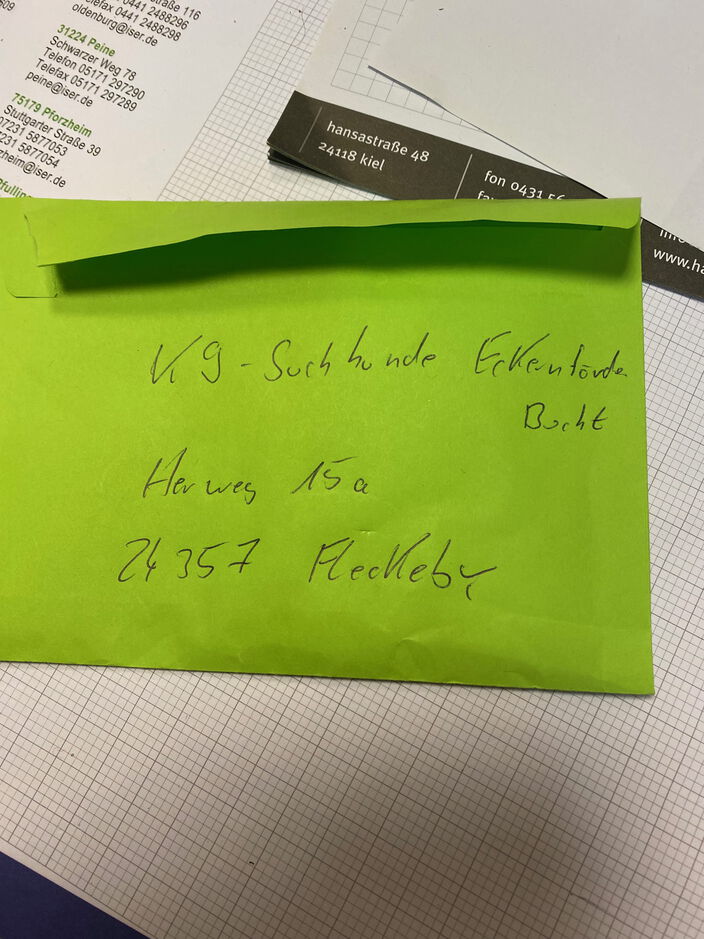 straße 116
Telefon 0441 2488296
Telefax 0441 2488298
oldenburg@iser.de
31224 Peine
Schwarzer Weg 78
Telefon 05171 297290
Telefax 05171 297289
peine@iser.de
75179 Pforzheim
Stuttgarter Straße 39
07231 5877053
07231 5877054
zheim@iser.de
hansastraße 48
24118 kiel
fon 0431 56
www.ha
K9-Suchhunde Eckernförde
Bucht
Herweg 15a
24357 Fleckeby